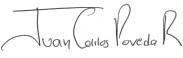 Juan Carlos Poveda R